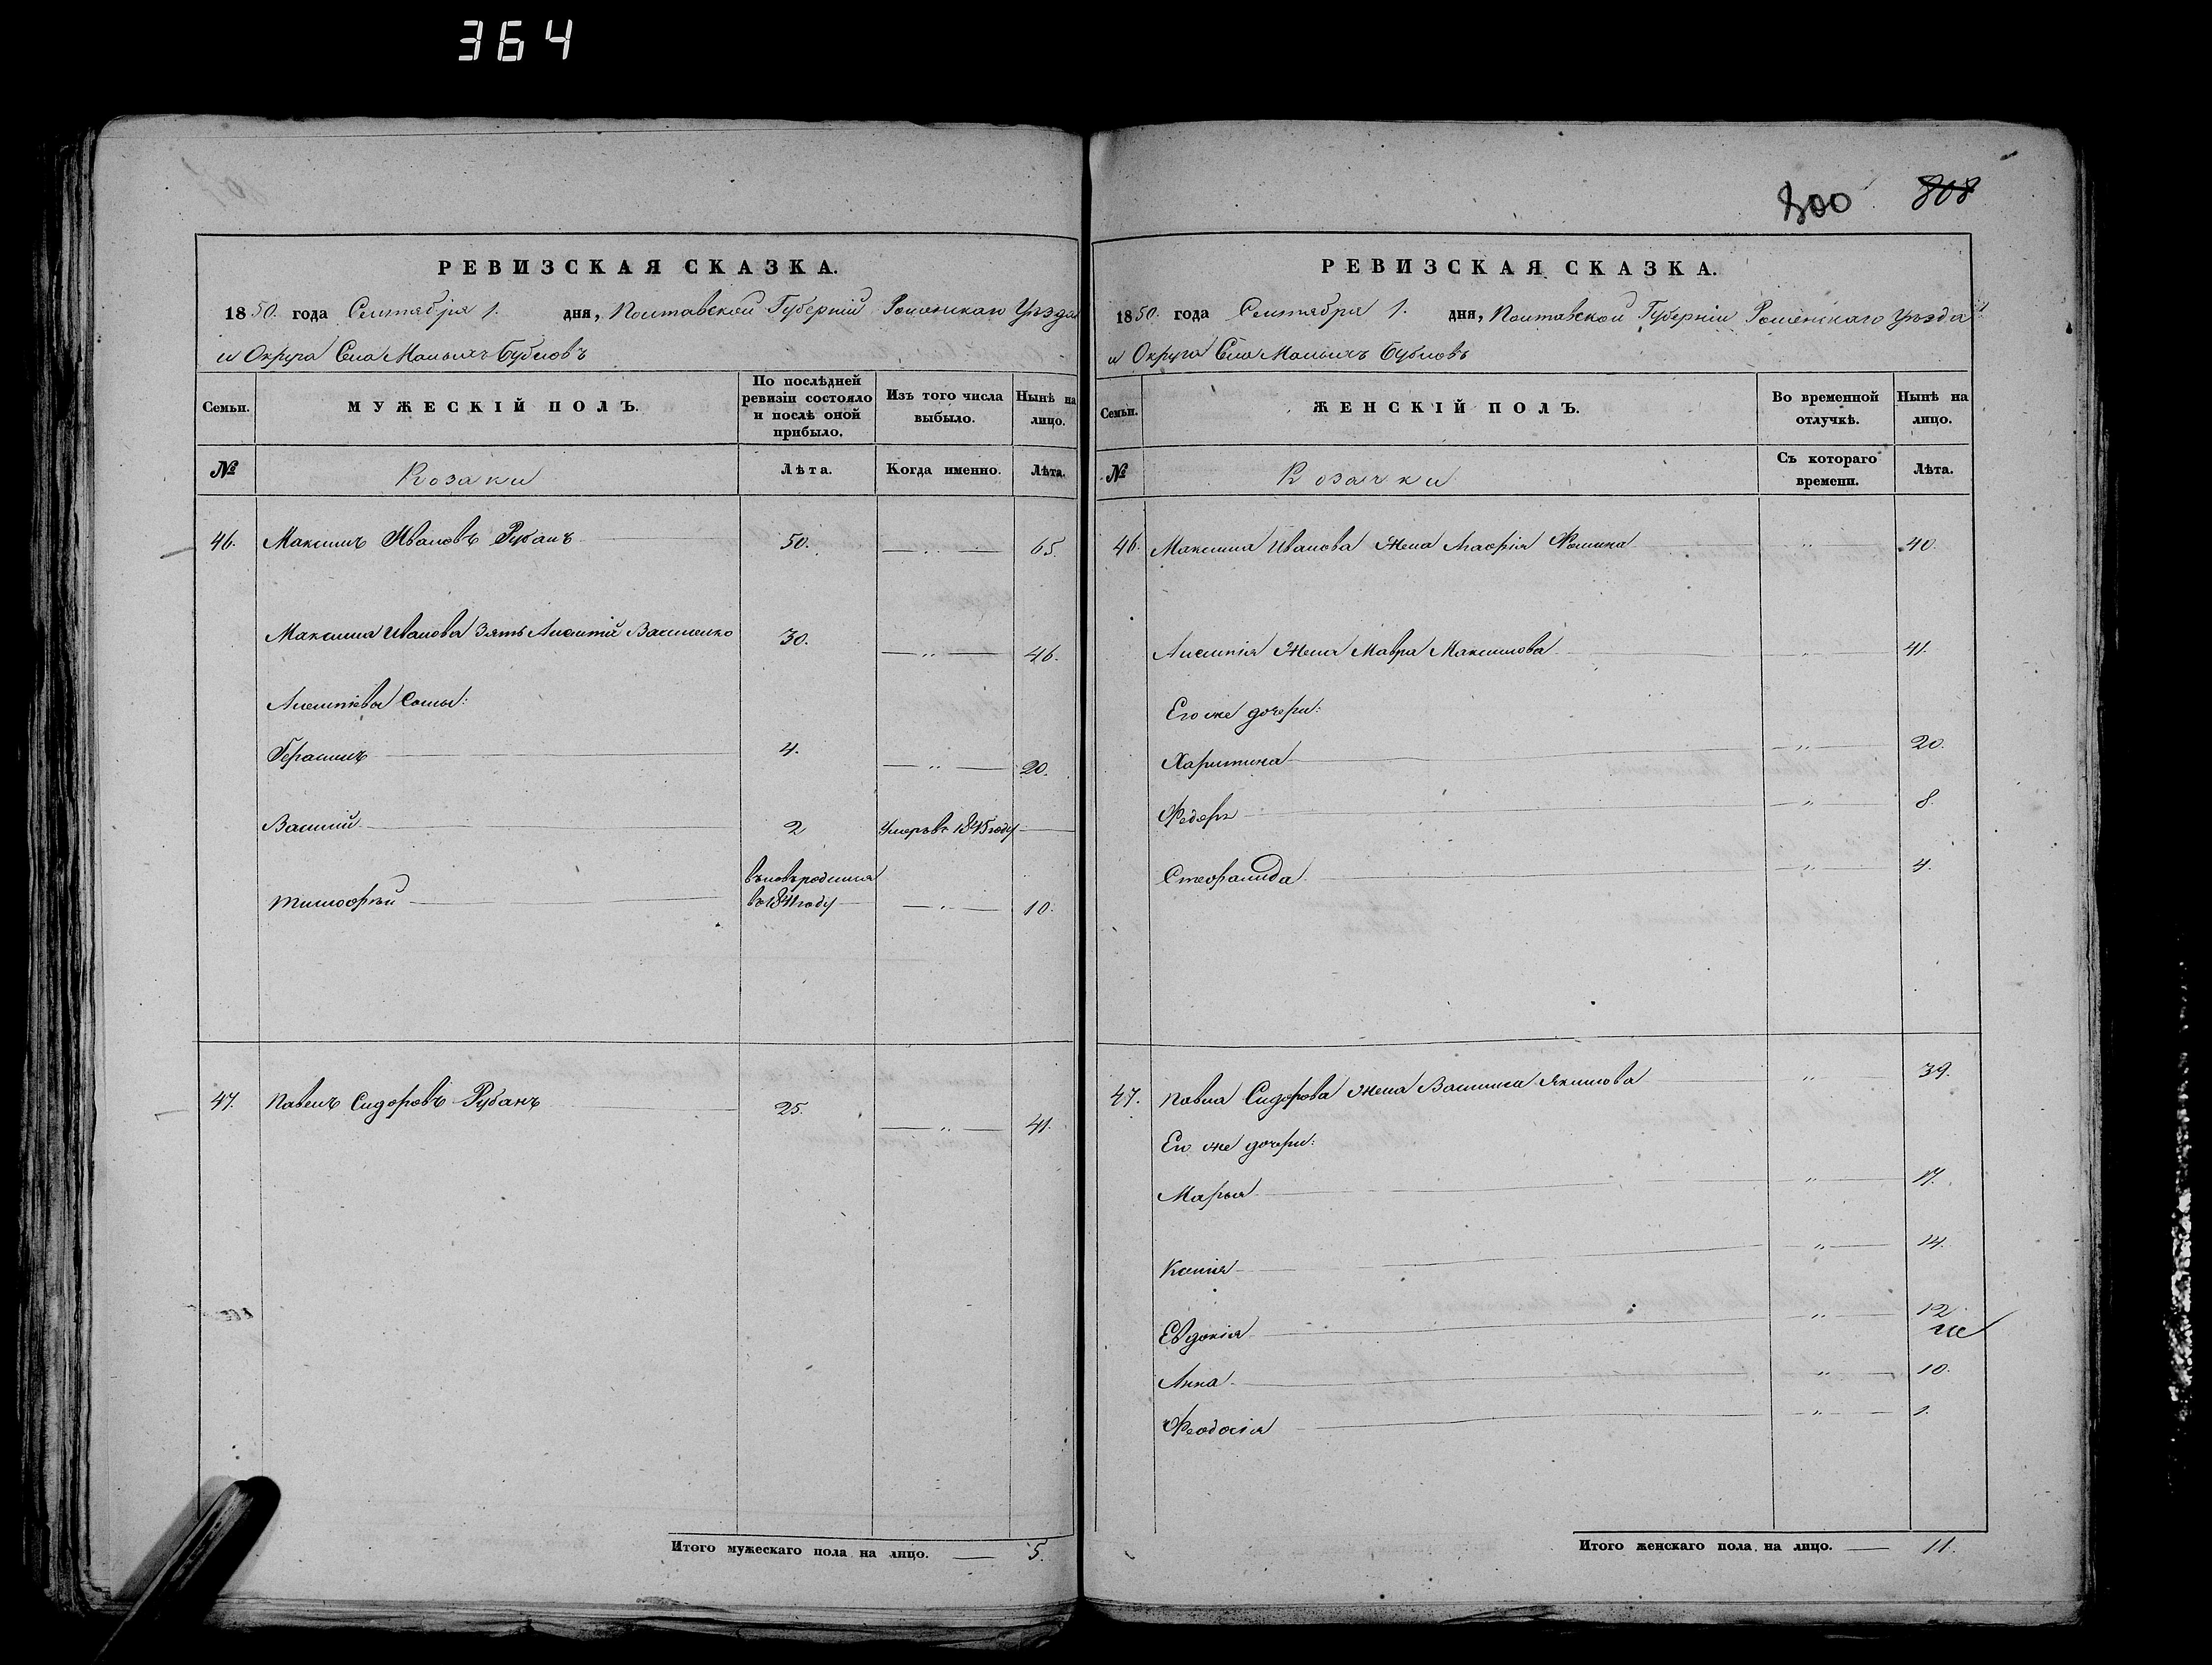 364
800 808
РЕВИЗСКАЯ СКАЗКА.
1850. года Сентября 1. дня, Полтавской Губерніи Роменскаго Уѣзда
и Округа Села Малыхъ Бубновъ
Семьи. МУЖЕСКІЙ ПОЛЪ. По послѣдней ревизіи состояло и послѣ оной прибыло. Изъ того числа выбыло. Нынѣ на лицо.
№ Козаки Лѣта. Когда именно. Лѣта.
46. Максимъ Ивановъ Рубанъ 50. — „ — 65.
Максима Иванова Зять Василенко 30. — „ — 46.
Сыны:
Герасимъ 4. — „ — 20.
Василій 2 Умеръ въ 1845 году
вновь родился
Тимофей въ 1841 году — „ — 10.
47. Павелъ Сидоровъ Рубанъ 25. — „ — 41.
Итого мужескаго пола на лицо. — 5.
РЕВИЗСКАЯ СКАЗКА.
1850. года Сентября 1. дня, Полтавской Губерніи Роменскаго Уѣзда
и Округа Села Малыхъ Бубновъ
Семьи. ЖЕНСКІЙ ПОЛЪ. Во временной отлучкѣ. Нынѣ на лицо.
№ Козачки Съ котораго времени. Лѣта.
46. Максима Иванова Жена Агафія Фомина „ 40.
Жена Мавра Максимова „ 41.
Его же дочери:
Харитина — „ — 20.
— „ — 8.
Стефанида — „ — 4.
47. Павла Сидорова Жена Василиса Якимова „ 39.
Его же дочери:
Марья — „ — 17.
Ксенія — „ — 14.
Евдокія — „ — 12.
Анна — „ — 10.
Феодосія — „ — 1.
Итого женскаго пола на лицо. — 11.